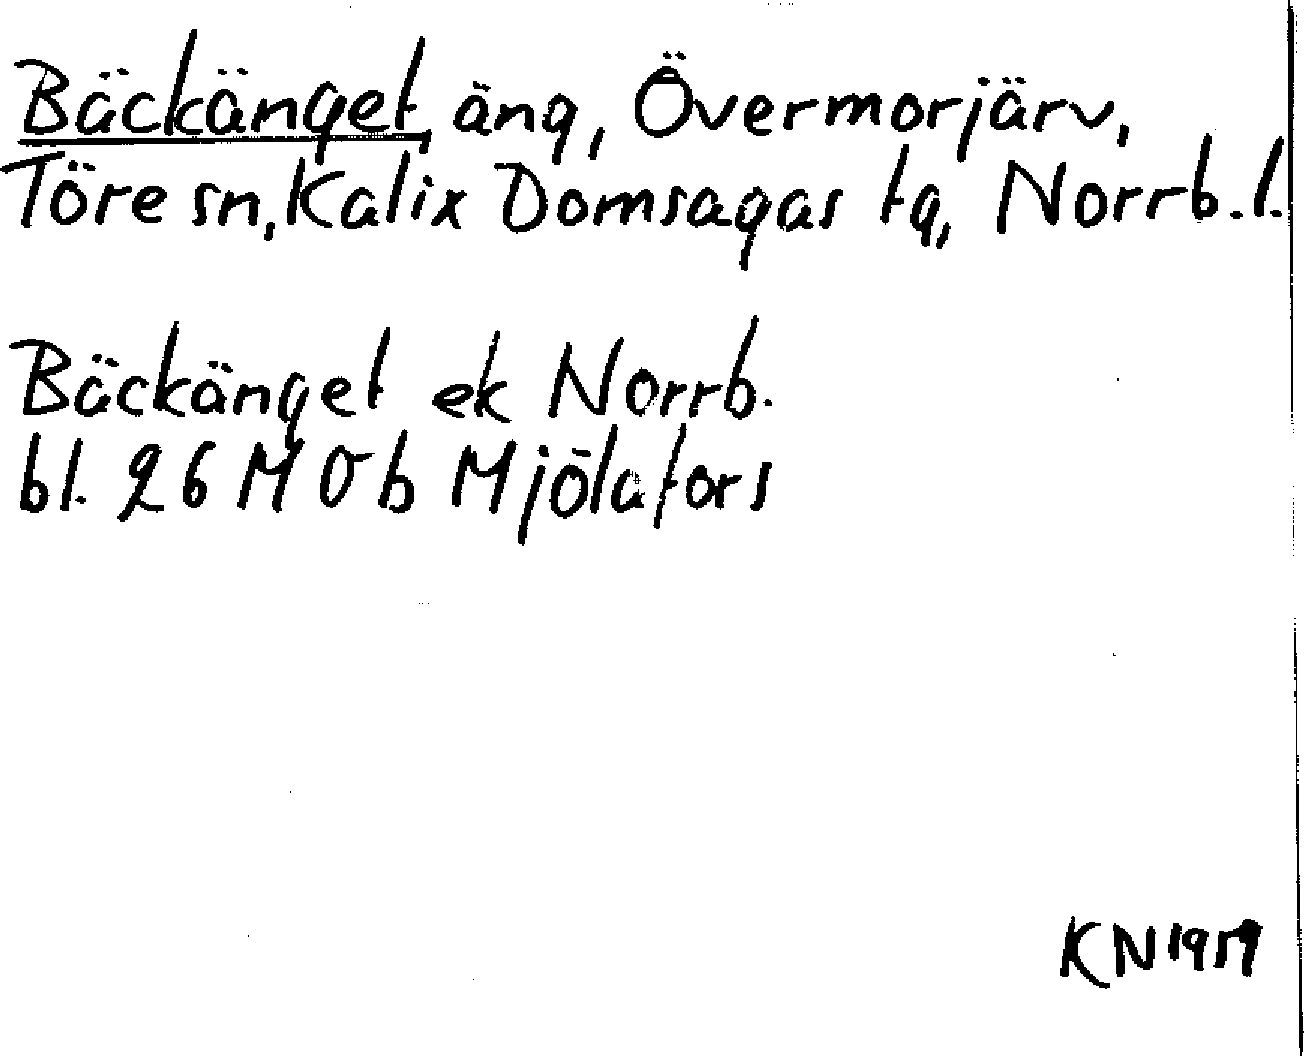 Bäckänget, äng, Övermorjärv,
Töre sn, Kalix Domsagas tg, Norrb. l.
Bäckänget ek Norrb.
bl. 26 M 0 b Mjölafors
KN 1959